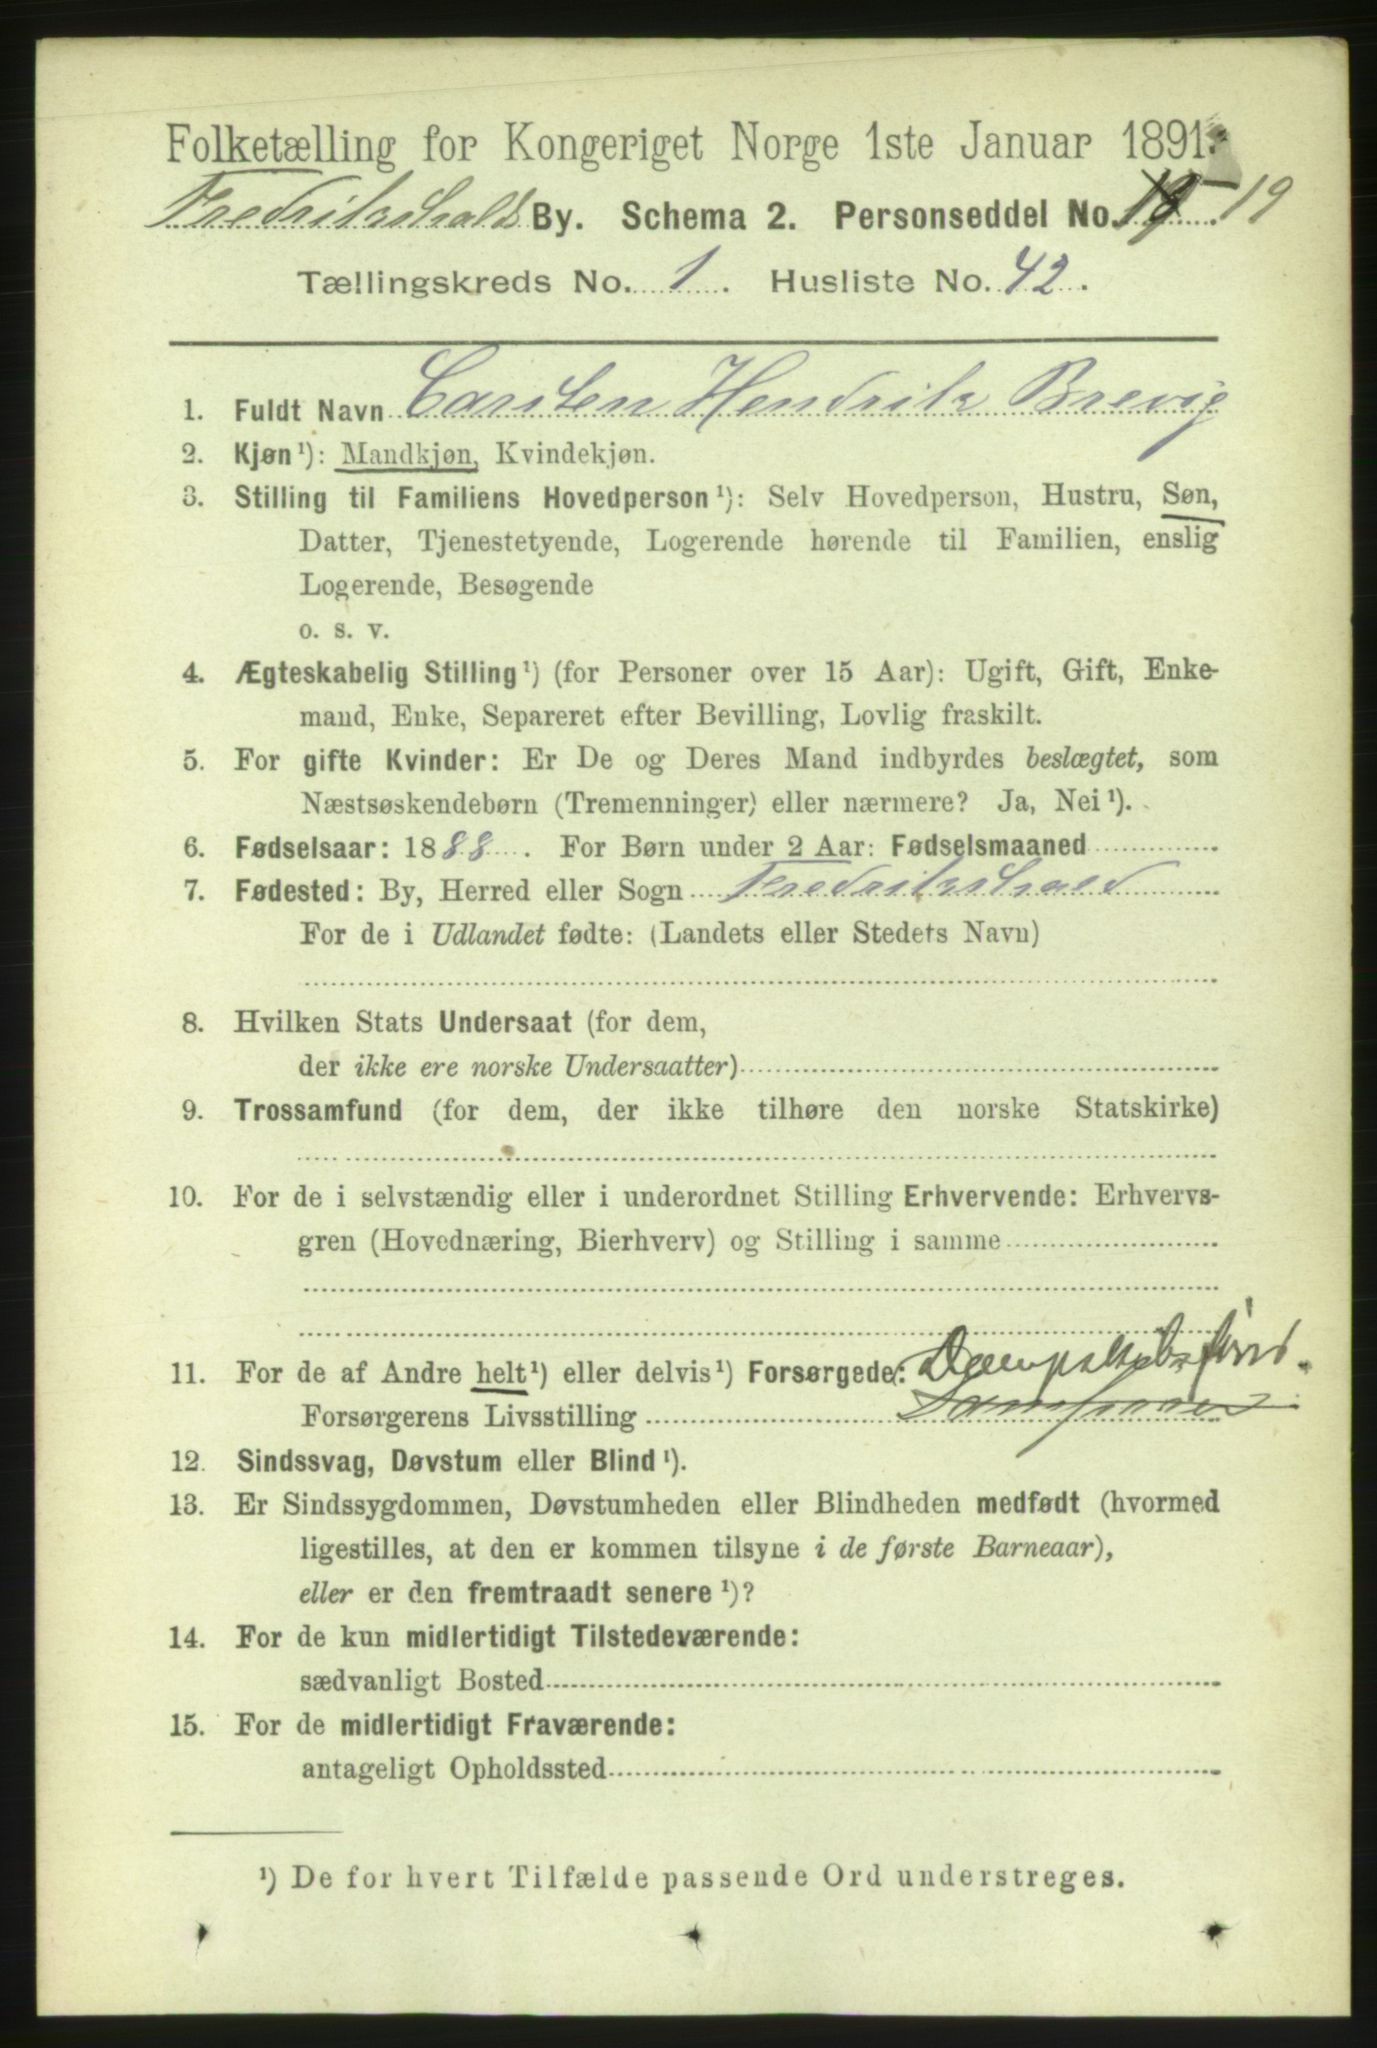 Folketælling for Kongeriget Norge 1ste Januar 1891.
Fredrikshalds By. Schema 2. Personseddel No. 19
Tællingskreds No. 1. Husliste No. 42.
1. Fuldt Navn Carsten Hendrik Brevig
2. Kjøn¹): Mandkjøn, Kvindekjøn.
3. Stilling til Familiens Hovedperson¹): Selv Hovedperson, Hustru, Søn,
Datter, Tjenestetyende, Logerende hørende til Familien, enslig
Logerende, Besøgende
o. s. v.
4. Ægteskabelig Stilling¹) (for Personer over 15 Aar): Ugift, Gift, Enke-
mand, Enke, Separeret efter Bevilling, Lovlig fraskilt.
5. For gifte Kvinder: Er De og Deres Mand indbyrdes beslægtet, som
Næstsøskendebørn (Tremenninger) eller nærmere? Ja, Nei¹).
6. Fødselsaar: 1888. For Børn under 2 Aar: Fødselsmaaned
7. Fødested: By, Herred eller Sogn Fredrikshald
For de i Udlandet fødte: (Landets eller Stedets Navn)
8. Hvilken Stats Undersaat (for dem,
der ikke ere norske Undersaatter)
9. Trossamfund (for dem, der ikke tilhøre den norske Statskirke)
10. For de i selvstændig eller i underordnet Stilling Erhvervende: Erhvervs-
gren (Hovednæring, Bierhverv) og Stilling i samme
11. For de af Andre helt¹) eller delvis¹) Forsørgede:
Forsørgerens Livsstilling
12. Sindssvag, Døvstum eller Blind¹).
13. Er Sindssygdommen, Døvstumheden eller Blindheden medfødt (hvormed
ligestilles, at den er kommen tilsyne i de første Barneaar),
eller er den fremtraadt senere¹)?
14. For de kun midlertidigt Tilstedeværende:
sædvanligt Bosted
15. For de midlertidigt Fraværende:
antageligt Opholdssted
¹) De for hvert Tilfælde passende Ord understreges.